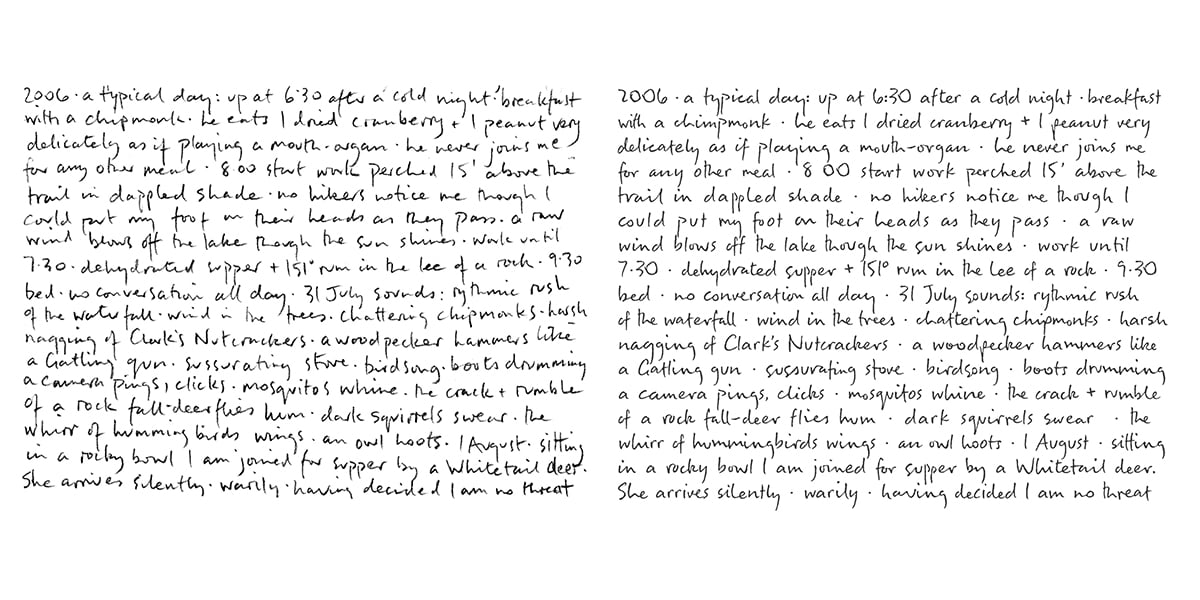 2006 · a typical day: up at 6·30 after a cold night · breakfast
with a chipmonk · he eats 1 dried cranberry + 1 peanut very
delicately as if playing a mouth-organ · he never joins me
for any other meal · 8.00 start work perched 15' above the
trail in dappled shade · no hikers notice me though I
could put my foot on their heads as they pass. a raw
wind blows off the lake though the sun shines · work until
7·30 · dehydrated supper + 151° rum in the lee of a rock · 9·30
bed · no conversation all day · 31 July sounds: rythmic rush
of the waterfall · wind in the trees. chattering chipmonks · harsh
nagging of Clark's Nutcrackers · a woodpecker hammers like
a Gatling gun · sussurating stove · birdsong · boots drumming
a camera pings, clicks · mosquitos whine. the crack + rumble
of a rock fall-deerflies hum · dark squirrels swear · the
whirr of humming birds wings · an owl hoots. 1 August · sitting
in a rocky bowl I am joined for supper by a Whitetail deer.
She arrives silently · warily · having decided I am no threat
2006 · a typical day: up at 6:30 after a cold night · breakfast
with a chimpmonk · he eats 1 dried cranberry + 1 peanut very
delicately as if playing a mouth-organ · he never joins me
for any other meal · 8 00 start work perched 15' above the
trail in dappled shade · no hikers notice me though I
could put my foot on their heads as they pass · a raw
wind blows off the lake though the sun shines · work until
7.30 · dehydrated supper + 151° rum in the lee of a rock · 9.30
bed · no conversation all day · 31 July sounds: rythmic rush
of the waterfall · wind in the trees · chattering chipmonks · harsh
nagging of Clark's Nutcrackers · a woodpecker hammers like
a Gatling gun · sussurating stove · birdsong · boots drumming
a camera pings, clicks · mosquitos whine · the crack + rumble
of a rock fall-deer flies hum · dark squirrels swear · the
whirr of hummingbirds wings · an owl hoots · 1 August · sitting
in a rocky bowl I am joined for supper by a Whitetail deer.
She arrives silently · warily · having decided I am no threat